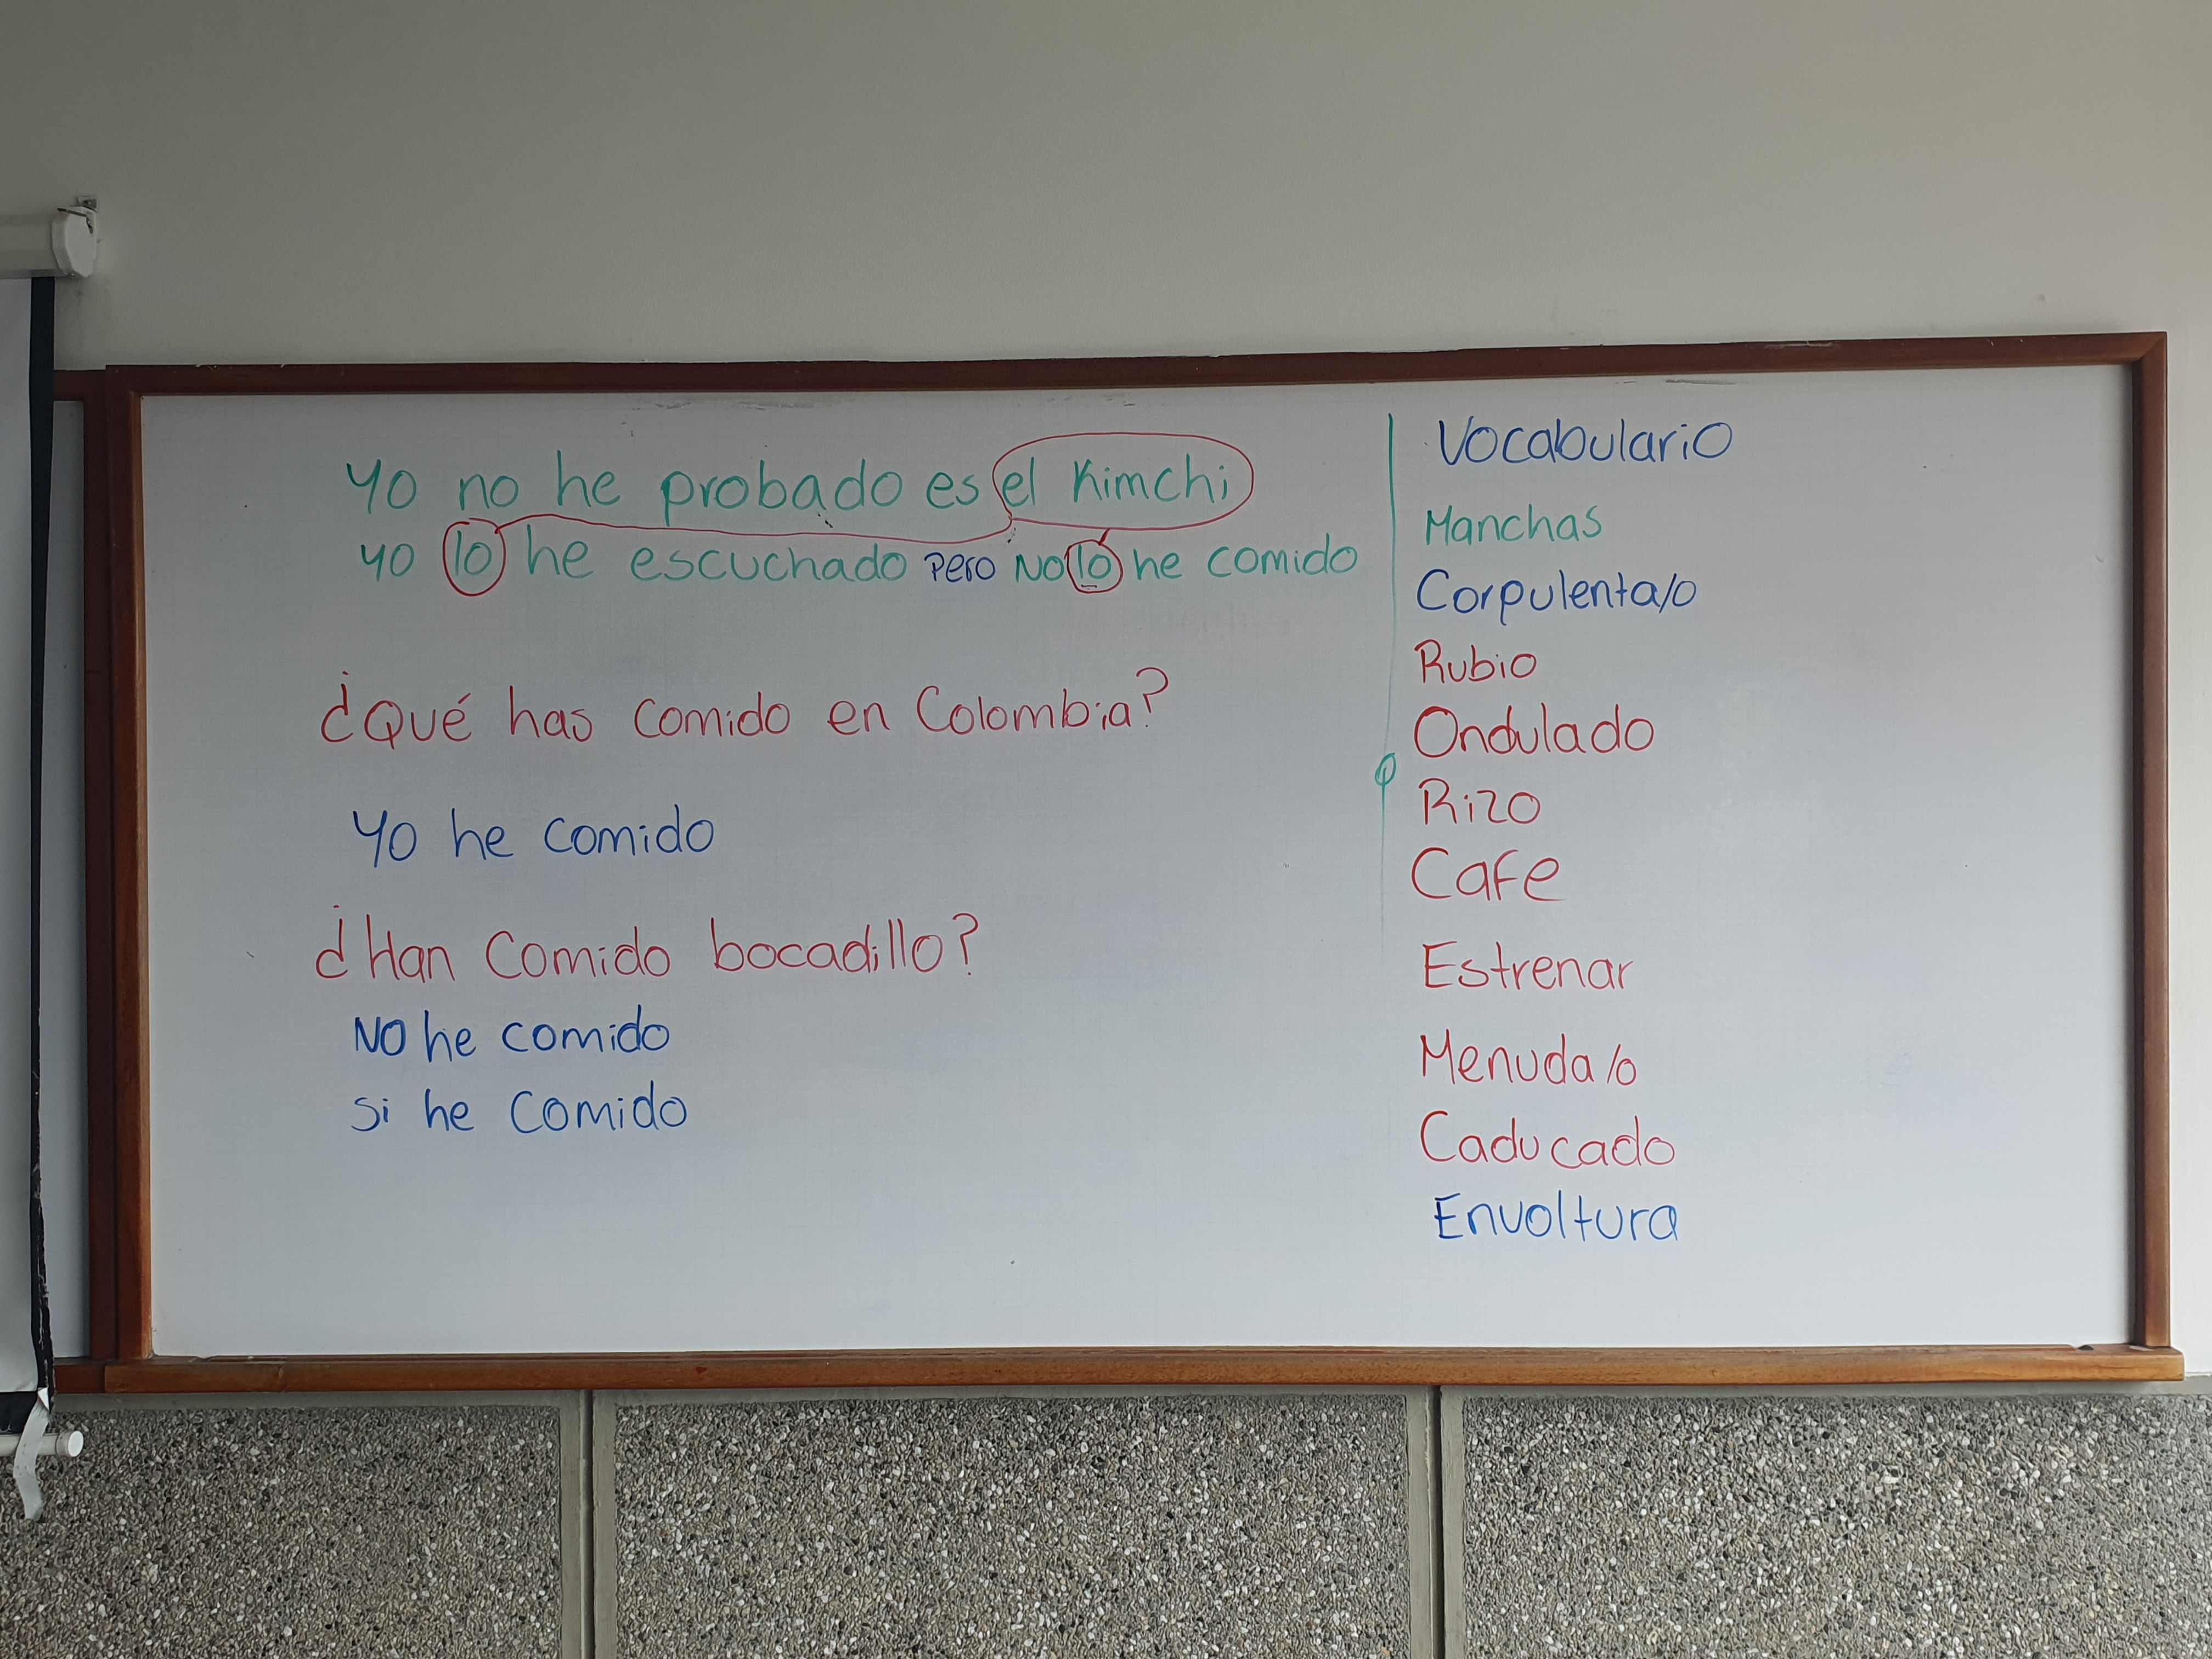 Yo no he probado es el Kimchi
yo lo he escuchado Pero No lo he comido
¿Qué has comido en Colombia?
Yo he comido
¿Han Comido bocadillo?
No he comido
si he Comido
Vocabulario
Manchas
Corpulenta/o
Rubio
Ondulado
Rizo
Cafe
Estrenar
Menuda/o
Caducado
Envoltura